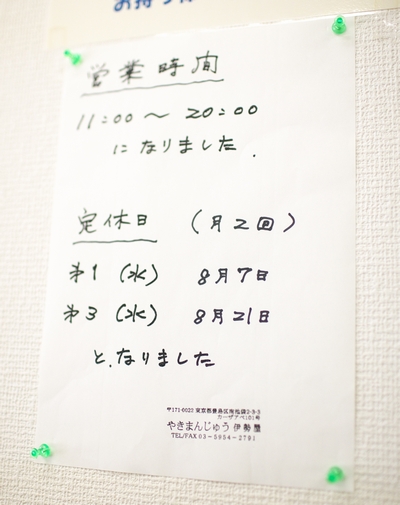 お持ち
営業時間
11:00～20:00
になりました.
定休日 (月2回)
第1 (水) 8月7日
第3 (水) 8月21日
と、なりました
〒171-0022 東京都豊島区南池袋2-9-3
カーザアベ101号
やきまんじゅう 伊勢屋
TEL/FAX 03-5954-2791